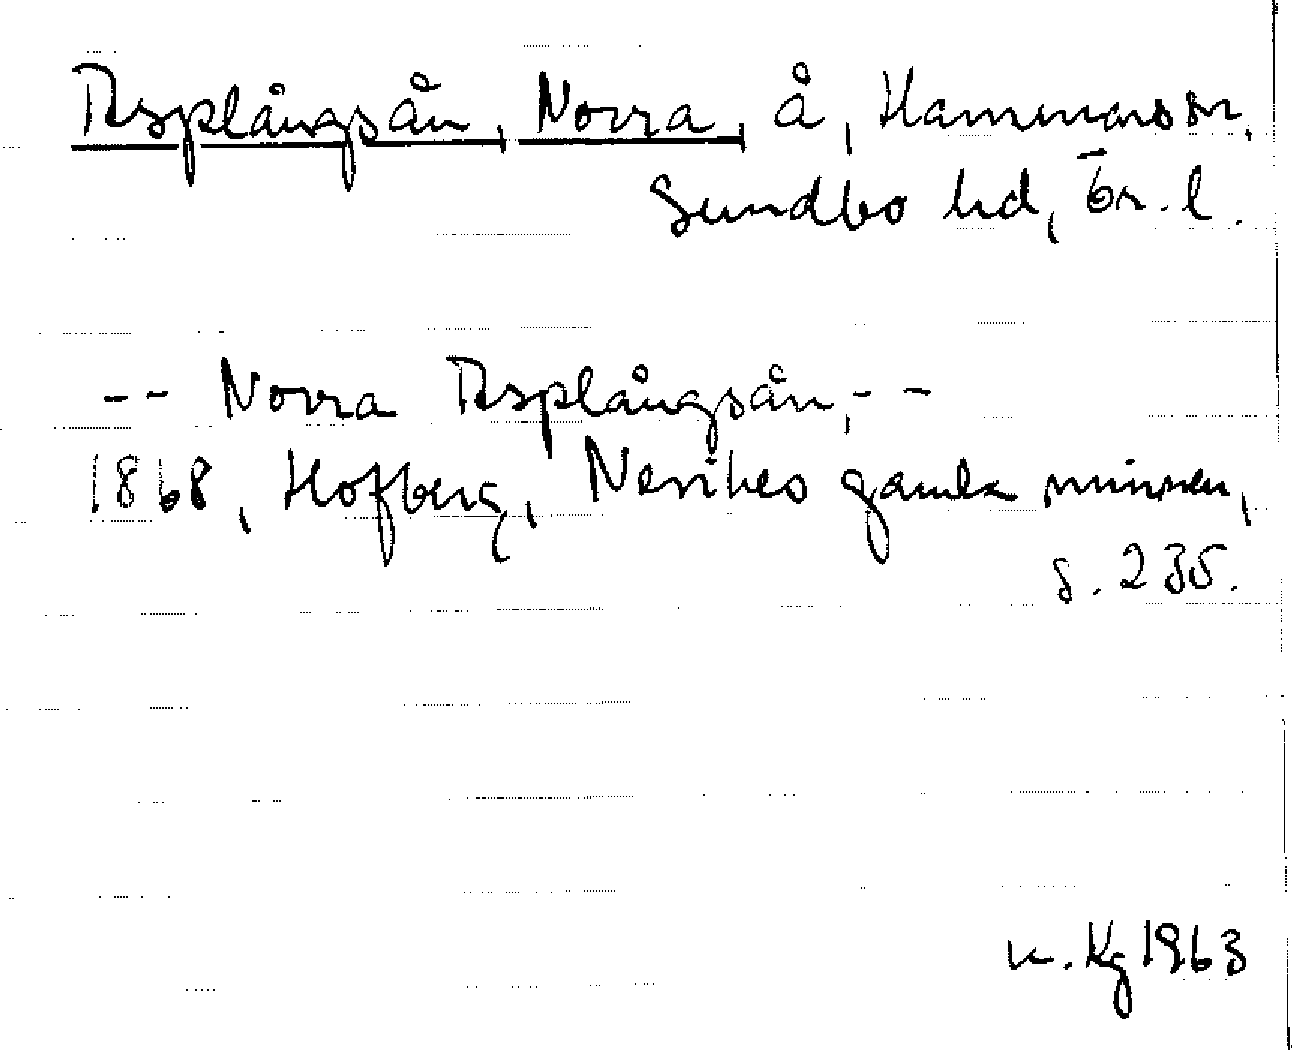 Asplångsån, Norra, å, Hammars sn,
Sundbo hd, Ör. l.
-- Norra Asplångsån, --
1868, Hofberg, Nerikes gamla minnen,
s. 235.
Kg 1963